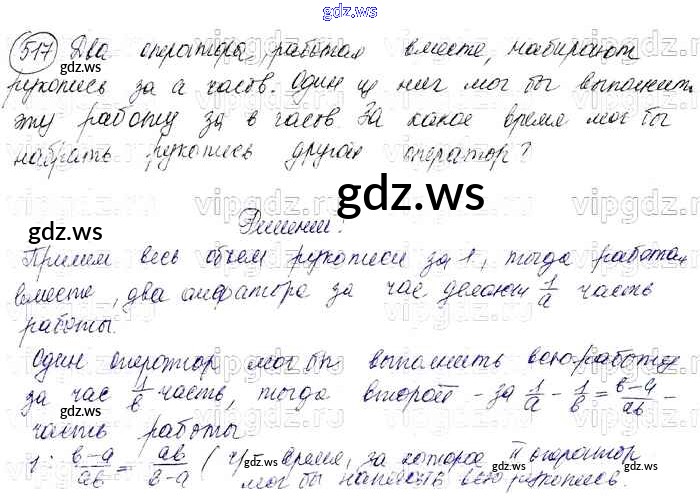 gdz.ws
517 Два оператора, работая вместе, набирают
рукопись за a часов. Один из них мог бы выполнить
эту работу за в часов. За какое время мог бы
набрать рукопись другой оператор?
gdz.ws
gdz.ws
Решение:
Примем весь объем рукописи за 1, тогда работая
вместе, два оператора за час делают 1/a часть
работы.
Один оператор мог бы выполнить всю работу
за час 1/в часть, тогда второй - за 1/a - 1/в = в-a/aв -
часть работы
1 : в-a/aв = aв/в-a (ч) - время, за которое II оператор
мог бы написать всю рукопись.
gdz.ws
gdz.ws
gdz.ws